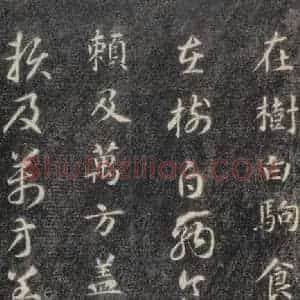 在樹白駒食
在樹白駒食
賴及萬方盖
賴及萬方盖
Shufaziliao.COM